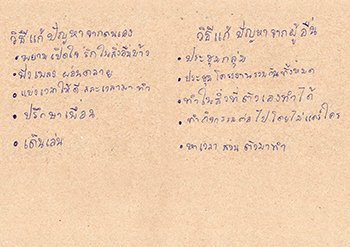 วิธีแก้ปัญหาจากตนเอง
• พยายามเปิดใจ รักในสิ่งอื่นบ้าง
• ฟังเพลง ผ่อนคลาย
• แบ่งเวลาให้ดี และเวลามาทำ
• ปรึกษาเพื่อน
• เดินเล่น
วิธีแก้ปัญหาจากผู้อื่น
• ประชุมกลุ่ม
• ประชุมโครงงานรวมกันทั้งหมด
• ทำในสิ่งที่ตัวเองทำได้
• ทำกิจกรรมต่อไปโดยไม่แคร์ใคร
• หาเวลา ส่วนตัวมาทำ